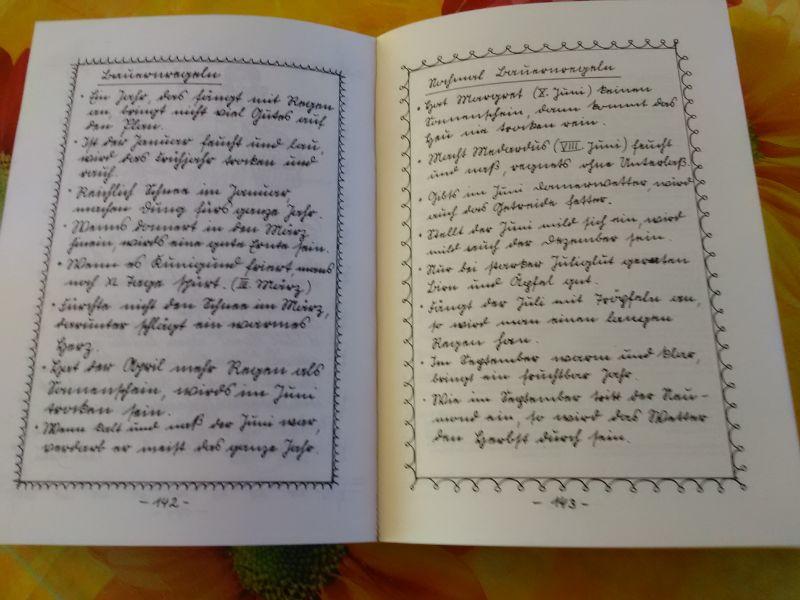 Bauernregeln
• Ein Jahr, das fängt mit Regen
an, bringt nicht viel Gutes auf
den Plan.
• Ist der Januar feucht und lau,
wird das Frühjahr trocken und
rauh.
• Reichlich Schnee im Januar,
machen Dung fürs ganze Jahr.
• Wenns donnert in den März
hinein, wirds eine gute Ernte sein.
• Wenn es Kunigund friert, mans
noch XL Tage spürt. (III. März)
• Fürchte nicht den Schnee im März,
darunter schlägt ein warmes
Herz.
• Hat der April mehr Regen als
Sonnenschein, wirds im Juni
trocken sein.
• Wenn kalt und naß der Juni war,
verdarb er meist das ganze Jahr.
- 142 -
Nochmal Bauernregeln
• Hat Margret (X. Juni) keinen
Sonnenschein, dann kommt das
Heu nie trocken rein.
• Macht Medardus (VIII. Juni) feucht
und naß, regnets ohne Unterlaß.
• Gibts im Juni Donnerwetter, wird
auch das Getreide fetter.
• Stellt der Juni mild sich ein, wird
mild auch der Dezember sein.
• Nur bei starker Juliglut geraten
Birn und Äpfel gut.
• Fängt der Juli mit Tröpfeln an,
so wird man einen langen
Regen han.
• Im September warm und klar,
bringt ein fruchtbar Jahr.
• Wie im September tritt der Neu-
mond ein, so wird das Wetter
den Herbst durch sein.
- 143 -